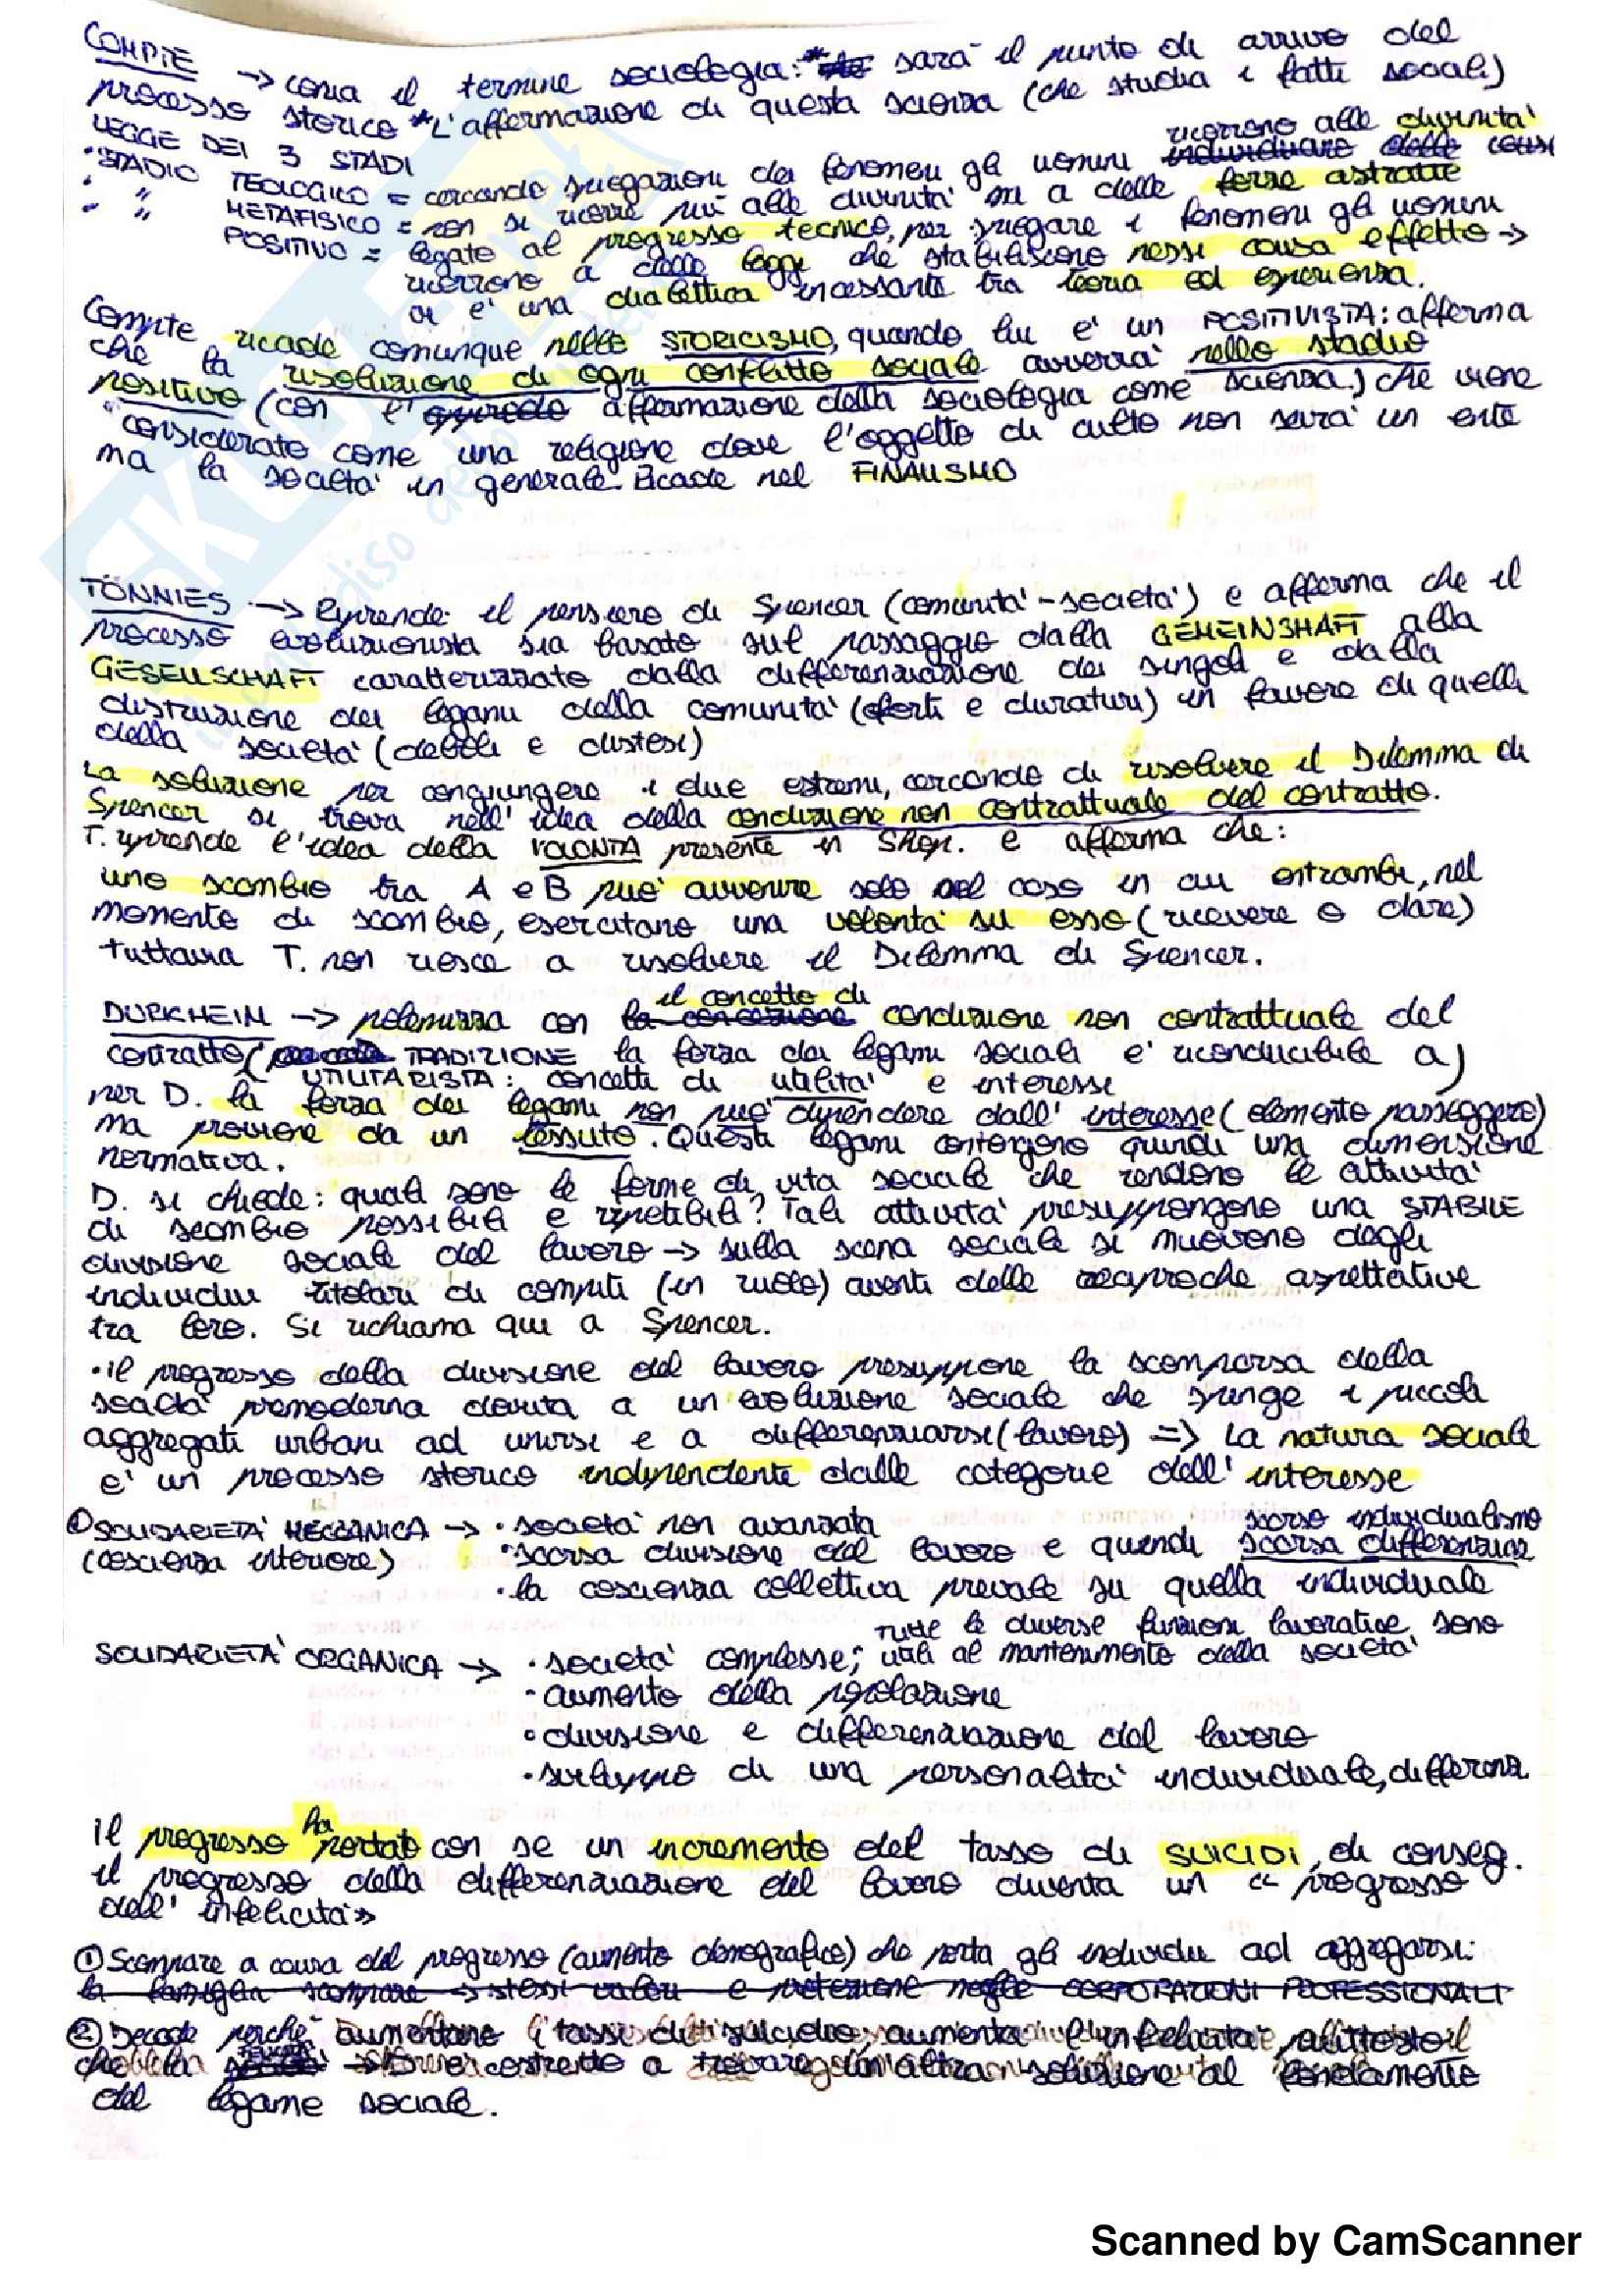 COMPTE → conia il termine sociologia: * sarà il punto di arrivo del
processo storico *L'affermazione di questa scienza (che studia i fatti sociali)
LEGGE DEI 3 STADI
ricorrono alle divinità
• STADIO TEOLOGICO = cercando spiegazioni dei fenomeni gli uomini individuano delle cause
• " METAFISICO = non si ricorre più alle divinità ma a delle forze astratte
• " POSITIVO = legato al progresso tecnico, per spiegare i fenomeni gli uomini
ricorrono a delle leggi che stabiliscono nessi causa effetto →
vi è una dialettica incessante tra teoria ed esperienza.
Compte ricade comunque nello STORICISMO, quando lui è un POSITIVISTA: afferma
che la risoluzione di ogni conflitto sociale avverrà nello stadio
positivo (con l' affermazione della sociologia come scienza) che viene
considerato come una religione dove l'oggetto di culto non sarà un ente
ma la società in generale. Ricade nel FINALISMO
TÖNNIES → Riprende il pensiero di Spencer (comunità-società) e afferma che il
processo evoluzionista sia basato sul passaggio dalla GEMEINSHAFT alla
GESELLSCHAFT caratterizzato dalla differenziazione dei singoli e dalla
distruzione dei legami della comunità (forti e duraturi) in favore di quelli
della società (deboli e distesi)
La soluzione per congiungere i due estremi, cercando di risolvere il Dilemma di
Spencer si trova nell'idea della condizione non contrattuale del contratto.
T. riprende l'idea della VOLONTÀ presente in Shop. e afferma che:
uno scambio tra A e B può avvenire solo nel caso in cui entrambi, nel
momento di scambio, esercitano una volontà su esso (ricevere o dare)
tuttavia T. non riesce a risolvere il Dilemma di Spencer.
il concetto di
DURKHEIM → polemizza con la concezione condizione non contrattuale del
contratto ( TRADIZIONE la forza dei legami sociali è riconducibile a)
UTILITARISTA: concetti di utilità e interessi
per D. la forza dei legami non può dipendere dall'interesse (elemento passeggero)
ma proviene da un tessuto. Questi legami contengono quindi una dimensione
normativa.
D. si chiede: quali sono le forme di vita sociale che rendono le attività
di scambio possibili e ripetibili? Tali attività presuppongono una STABILE
divisione sociale del lavoro → sulla scena sociale si muovono degli
individui titolari di compiti (un ruolo) aventi delle reciproche aspettative
tra loro. Si richiama qui a Spencer.
• Il progresso della divisione del lavoro presuppone la scomparsa della
società premoderna dovuta a un evoluzione sociale che spinge i piccoli
aggregati urbani ad unirsi e a differenziarsi (lavoro) => La natura sociale
è un processo storico indipendente dalle categorie dell'interesse
scarso individualismo
① SOLIDARIETÀ MECCANICA → • società non avanzata
(coscienza interiore) • scarsa divisione del lavoro e quindi scarsa differenziaz
• la coscienza collettiva prevale su quella individuale
tutte le diverse funzioni lavorative sono
SOLIDARIETÀ ORGANICA → • società complesse; utili al mantenimento della società
• aumento della popolazione
• divisione e differenziazione del lavoro
• sviluppo di una personalità individuale, differenz
Il progresso ha portato con se un incremento del tasso di SUICIDI, di conseg.
il progresso della differenziazione del lavoro diventa un « progresso
dell'infelicità»
① Scompare a causa del progresso (aumento demografico) che porta gli individui ad aggregarsi:
la famiglia scompare → stessi valori e protezione negle CORPORAZIONI PROFESSIONALI
② Decade perché aumentano i tassi di suicidio aumenta l'infelicità piuttosto il
che la è costretto a trovare un'altra soluzione al fondamento
del legame sociale.
Scanned by CamScanner